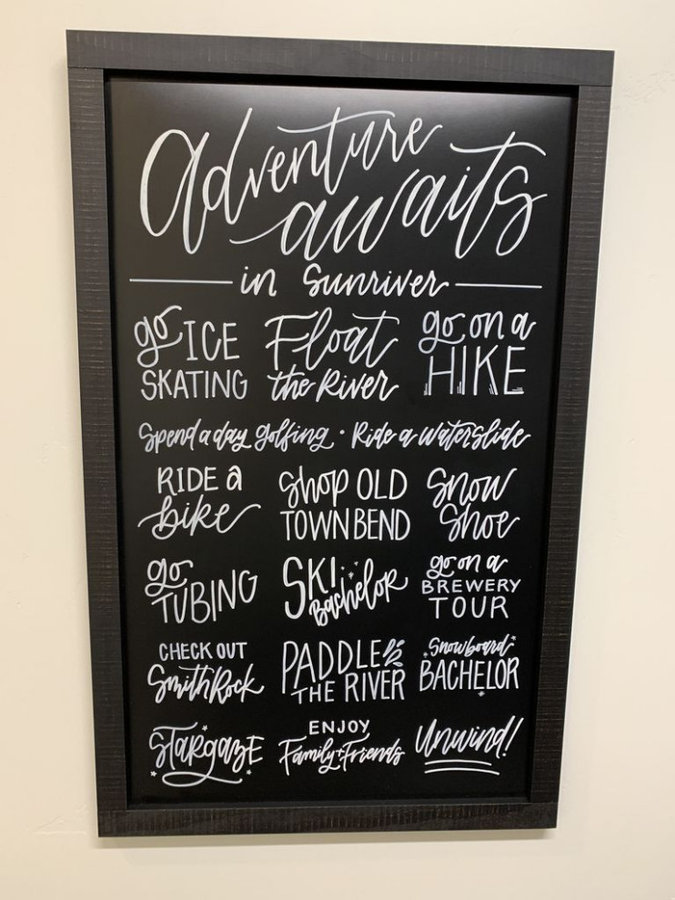 Adventure
awaits
in Sunriver
go ICE
SKATING
Float
the River
go on a
HIKE
Spend a day golfing · Ride a waterslide
RIDE a
bike
Shop OLD
TOWN BEND
Snow
Shoe
go
TUBING
SKI
Bachelor
go on a
BREWERY
TOUR
CHECK OUT
Smith Rock
PADDLE
THE RIVER
Snowboard
BACHELOR
STARGAZE
ENJOY
Family + Friends
Unwind!